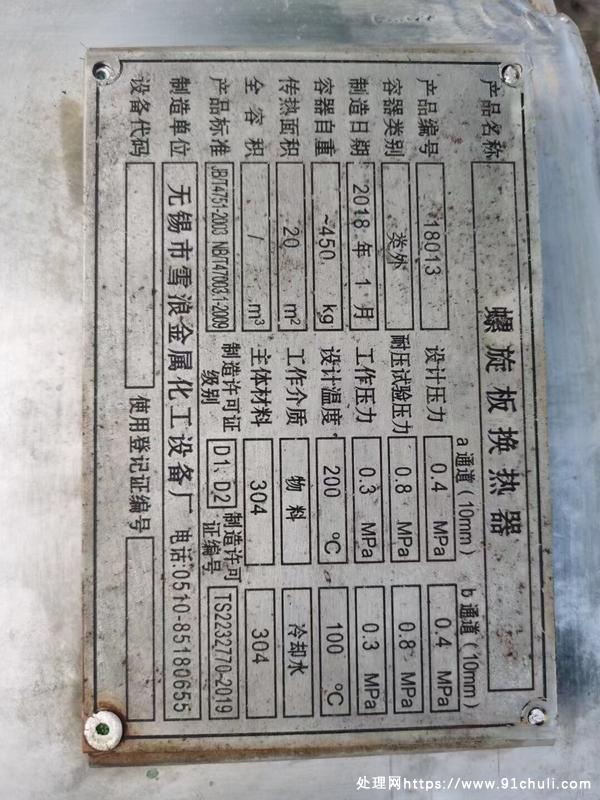 产品名称 螺旋板换热器
a通道(10mm) b通道(10mm)
产品编号 18013 设计压力 0.4 MPa 0.4 MPa
容器类别 类外 耐压试验压力 0.8 MPa 0.8 MPa
制造日期 2018年1月 工作压力 0.3 MPa 0.3 MPa
容器自重 ~450 kg 设计温度 200 ℃ 100 ℃
传热面积 20 m² 工作介质 物料 冷却水
全容积 / m³ 主体材料 304 304
产品标准 JB/T4751-2003 NB/T47003.1-2009 制造许可证级别 D1、D2 制造许可证编号 TS2232770-2019
制造单位 无锡市雪浪金属化工设备厂 电话:0510-85180655
设备代码 使用登记证编号
处理网https://www.91chuli.com/